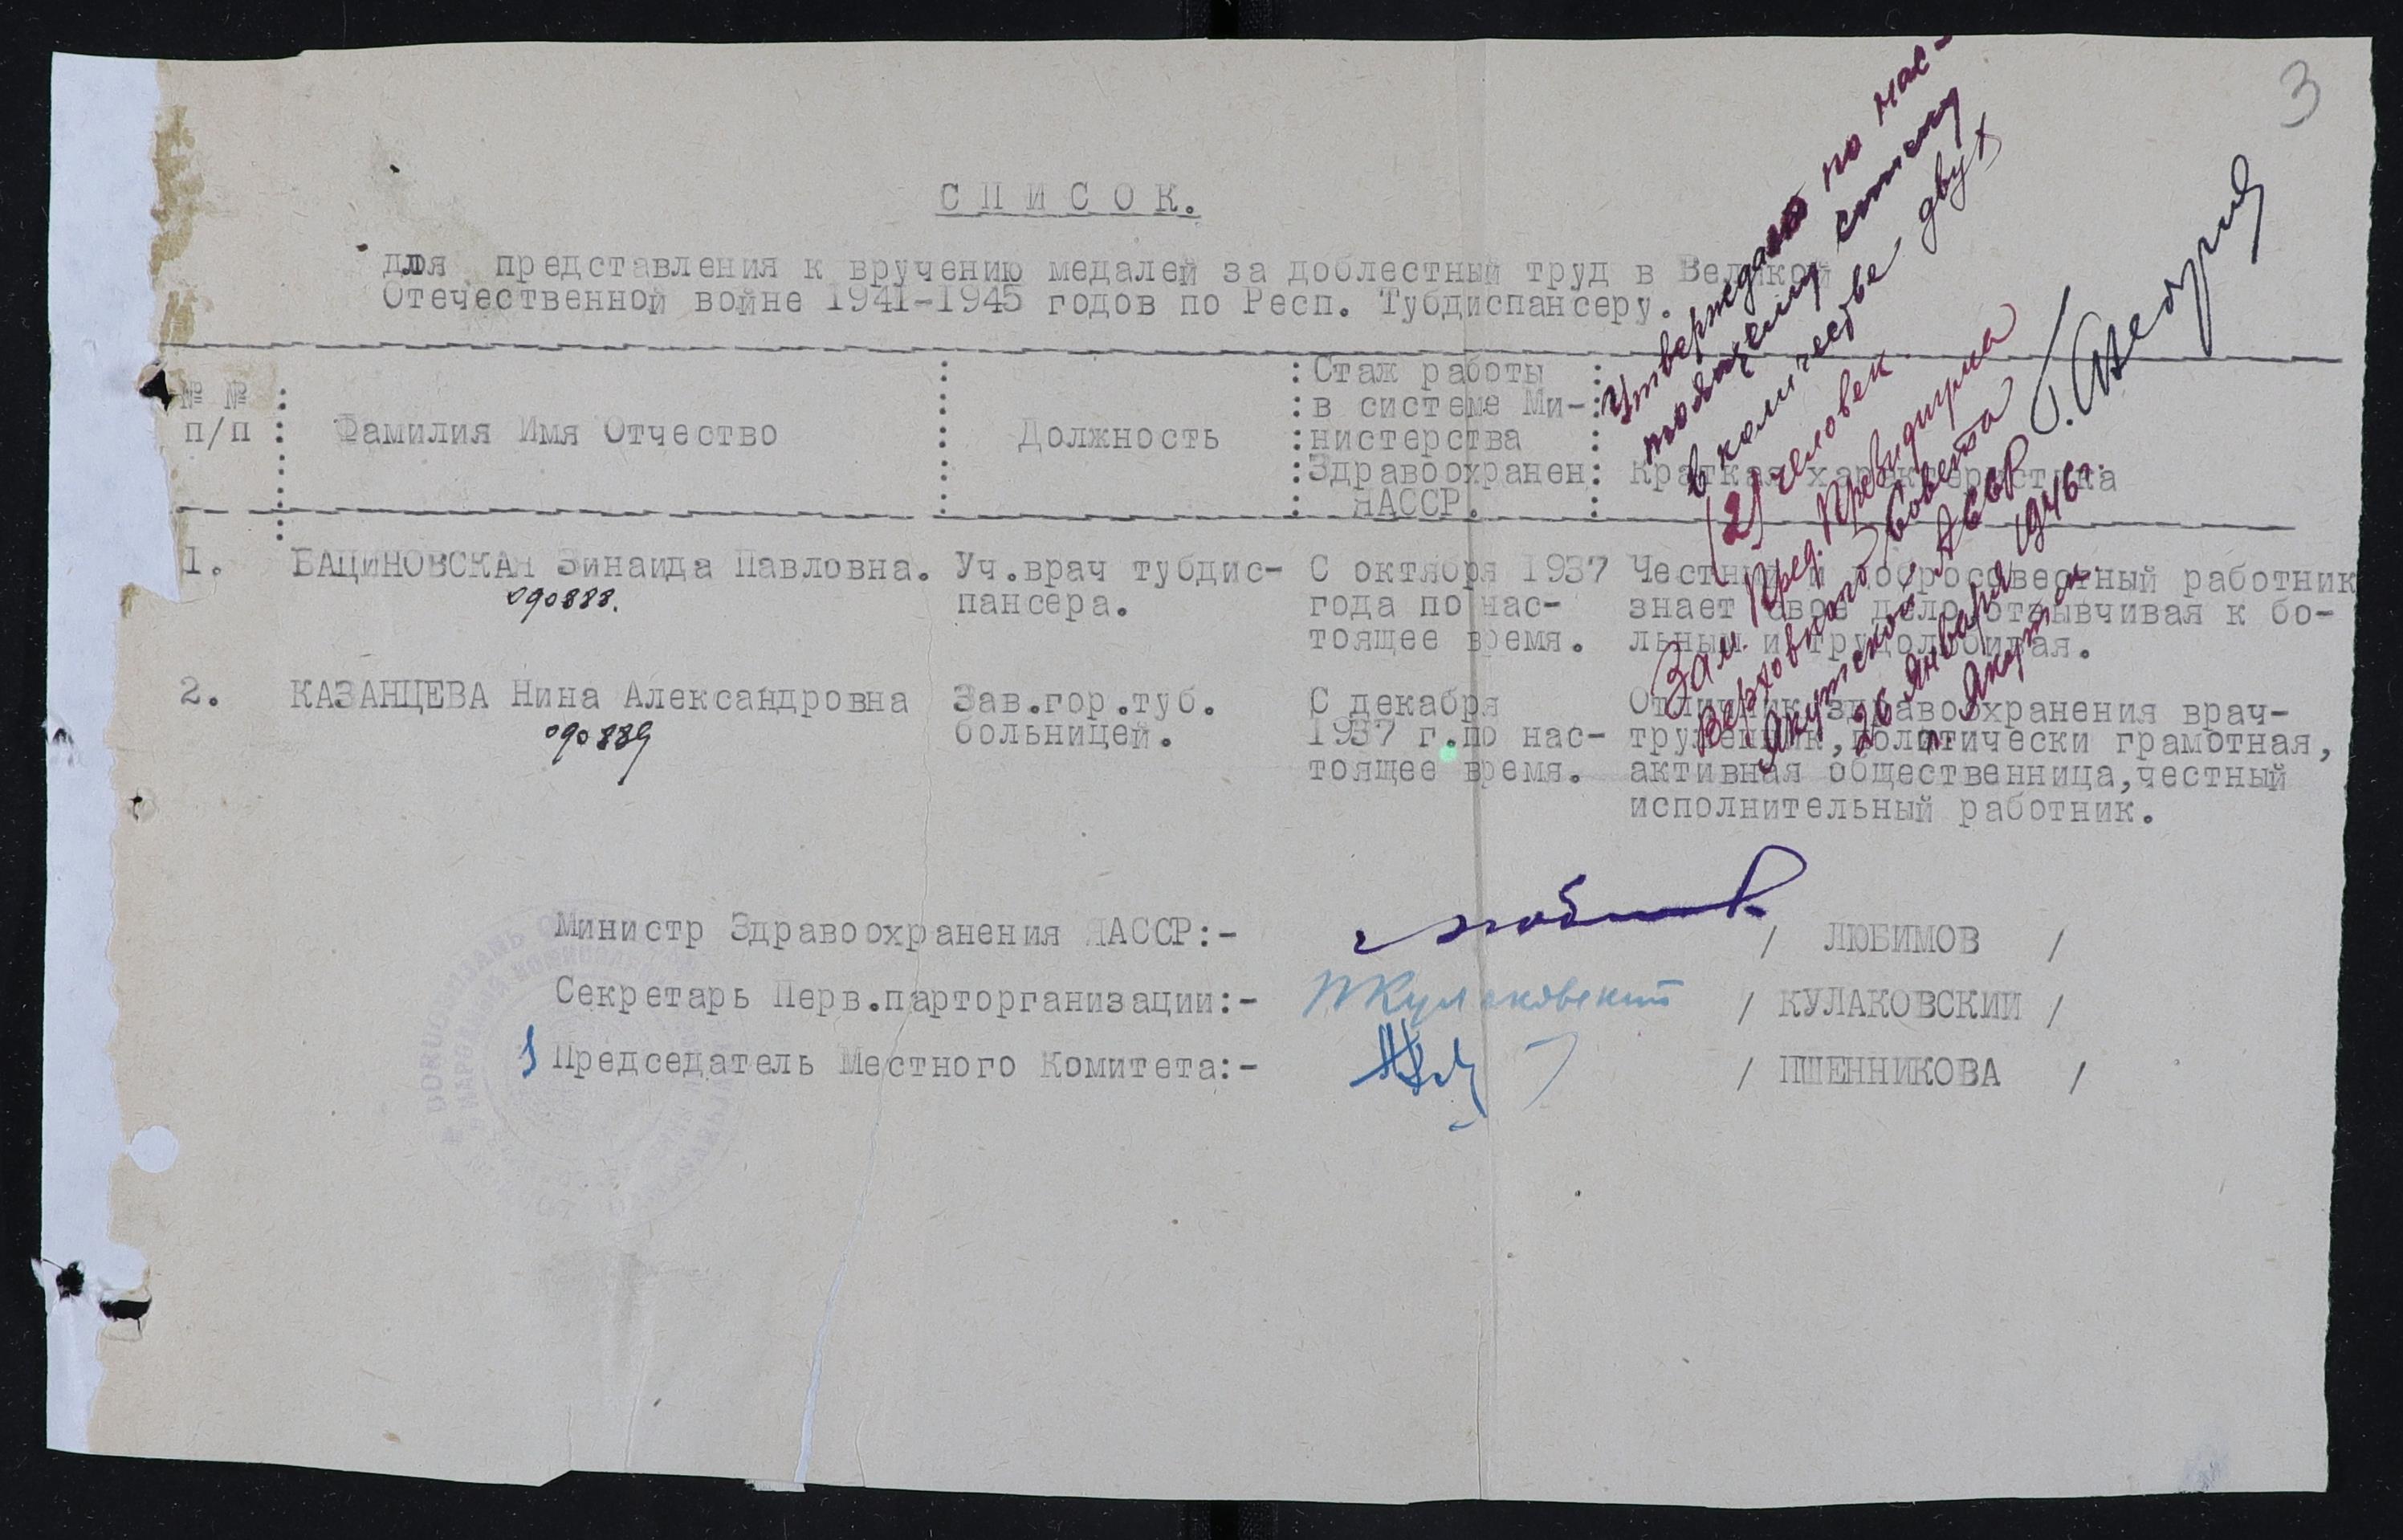 3
СПИСОК.
для представления к вручению медалей за доблестный труд в Великой
Отечественной войне 1941-1945 годов по Респ. Тубдиспансеру.
Утверждаю по нас-
тоящему списку
в количестве двух
(2) человек
Зам. Пред. Президиума
Верховного Совета
Якутской АССР
26 Января 1946 г.
г. Якутск
№ № п/п
Фамилия Имя Отчество
Должность
Стаж работы
в системе Ми-
нистерства
Здравоохранен
ЯАССР.
Краткая характеристика
1. БАЦИНОВСКАЯ Зинаида Павловна. Уч.врач тубдис- С октября 1937 Честный и добросовестный работник
090888. пансера. года по нас- знает свое дело,отзывчивая к бо-
тоящее время. льным и трудолюбивая.
2. КАЗАНЦЕВА Нина Александровна Зав.гор.туб. С декабря Отличник здравоохранения врач-
090889 больницей. 1937 г.по нас- труженник,политически грамотная,
тоящее время. активная общественница,честный
исполнительный работник.
Министр Здравоохранения ЯАССР:- / ЛЮБИМОВ /
Секретарь Перв.парторганизации:- Кулаковский / КУЛАКОВСКИЙ /
Председатель Местного Комитета:- / ПШЕННИКОВА /